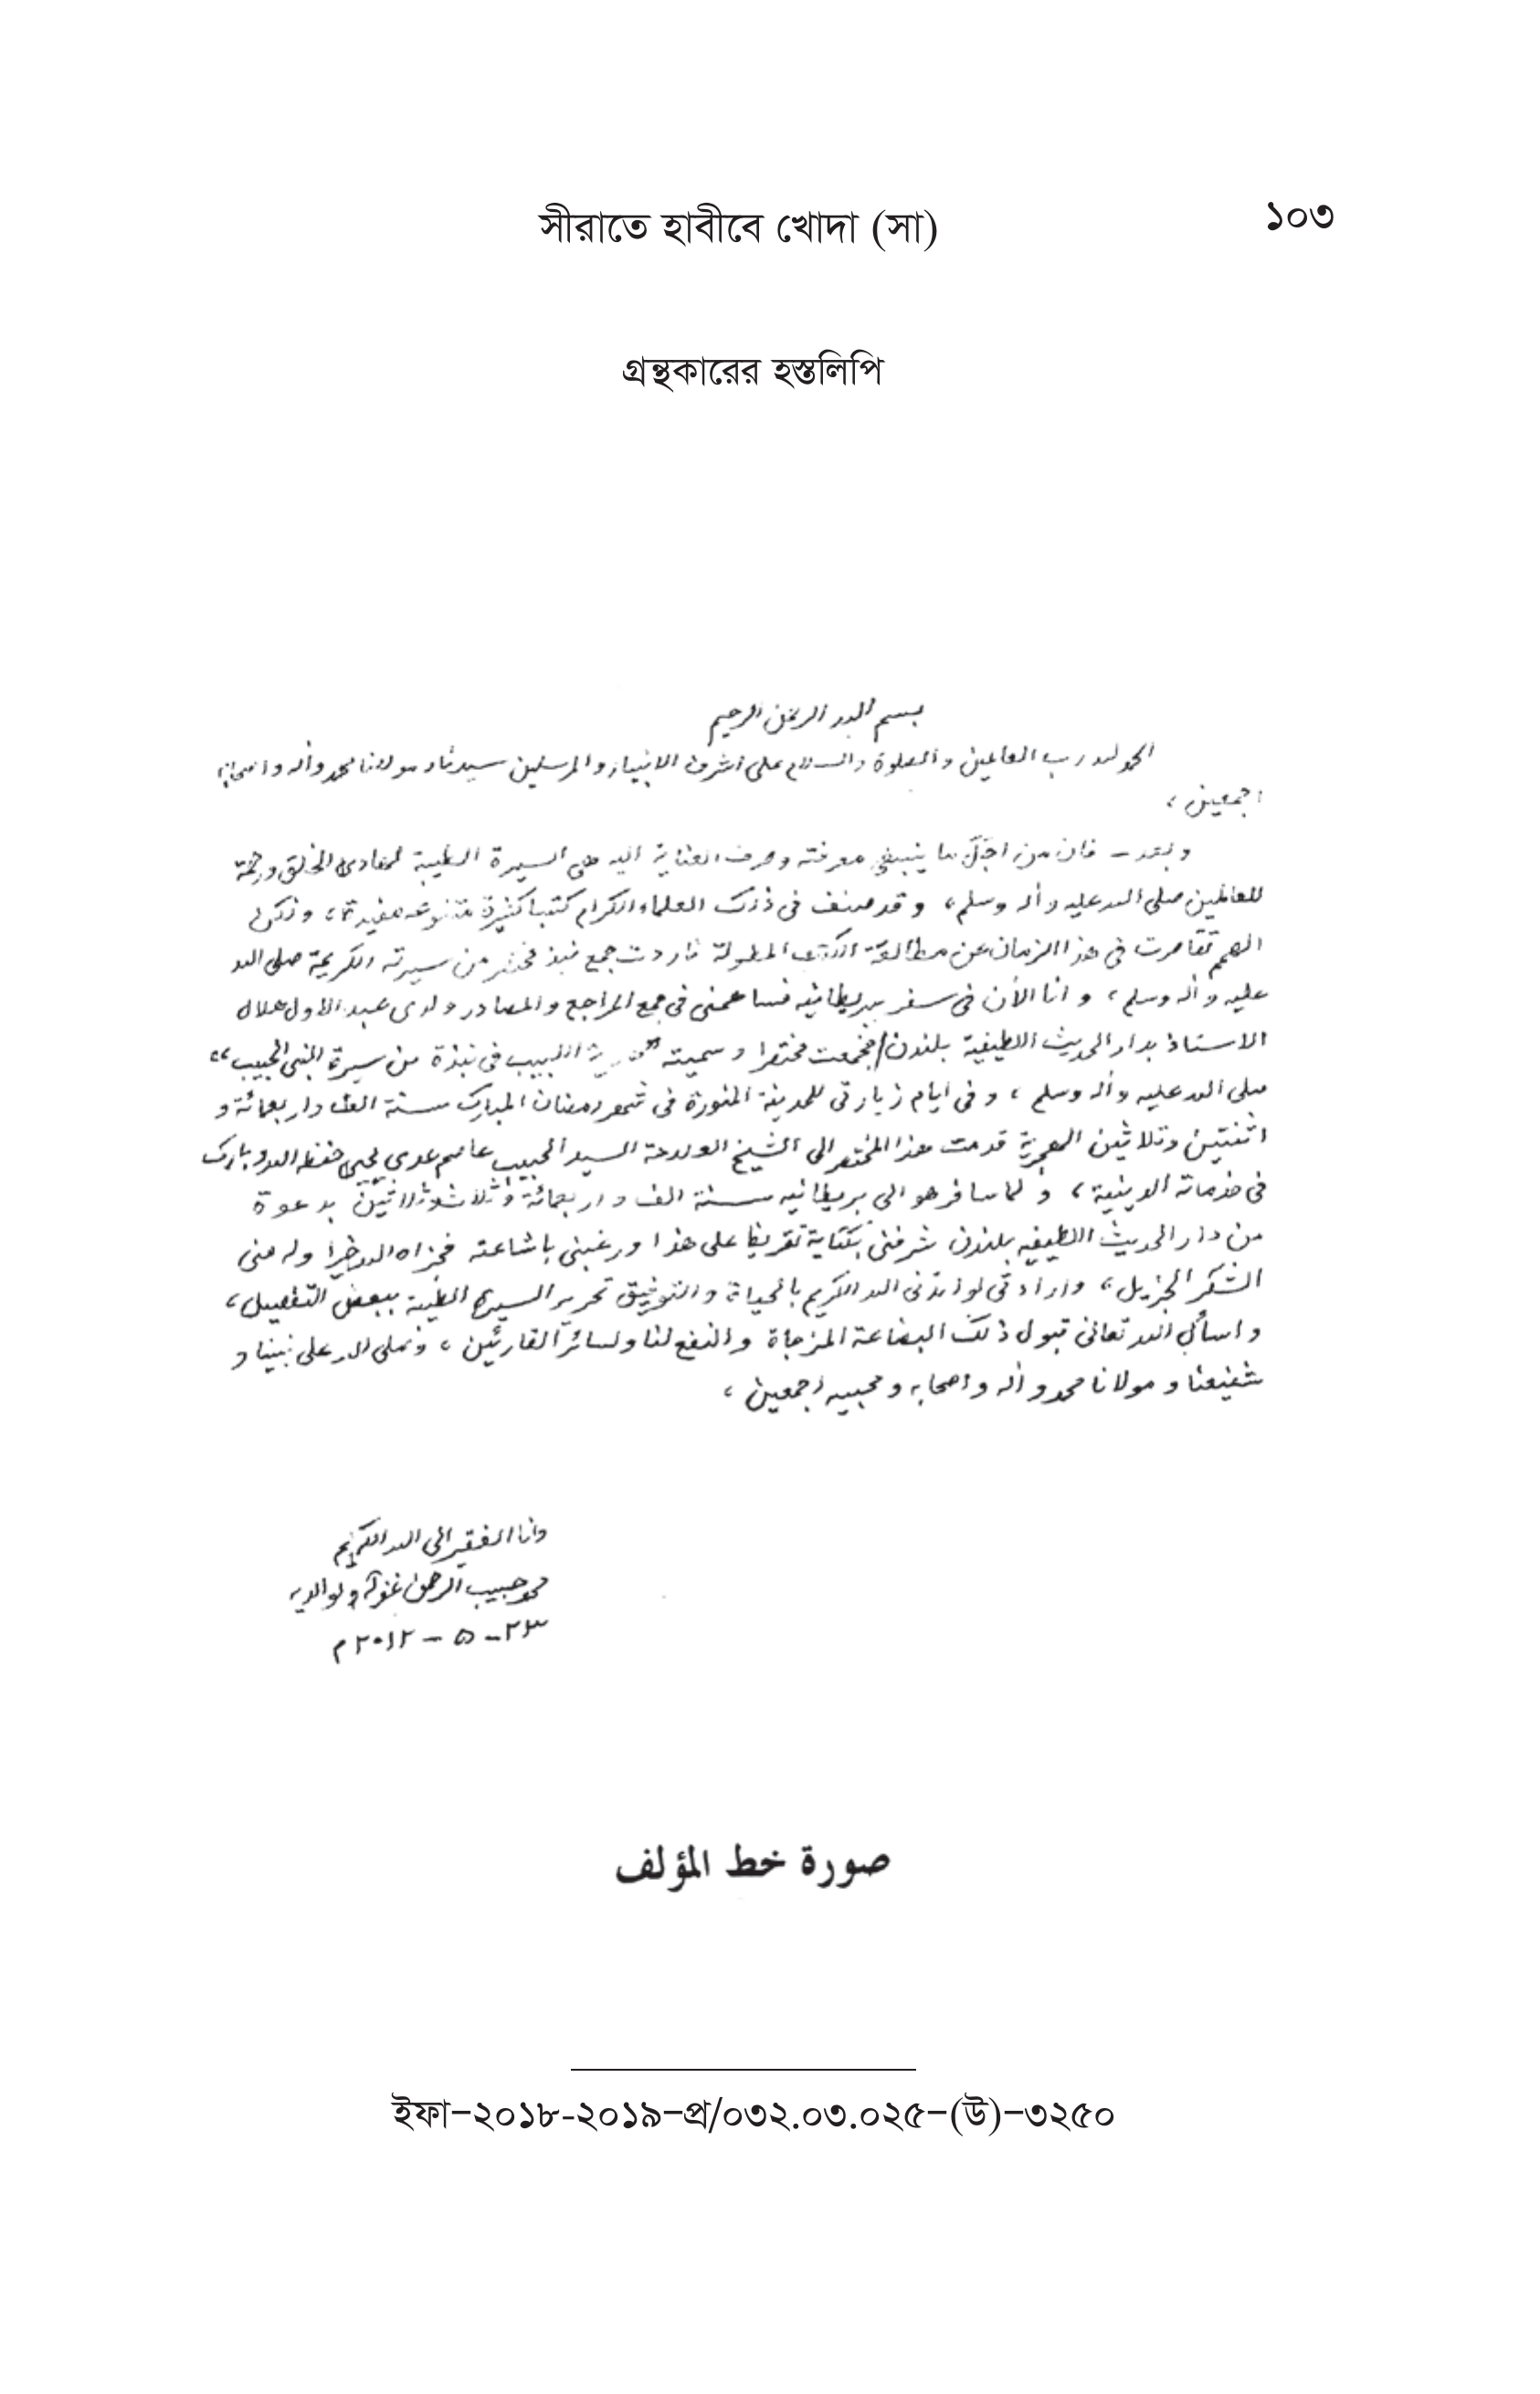 সীরাতে হাবীবে খোদা (সা)
১০৩
গ্রন্থকারের হস্তলিপি
بسم الله الرحمن الرحيم
الحمد لله رب العالمين والصلوة والسلام على اشرف الانبياء والمرسلين سيدنا ومولانا محمد وأله واصحابه
اجمعين ،
وبعد – فان من اجل ما ينبغي معرفته وصرف العناية اليه هى السيرة الطيبة لهادى الخلق ورحمة
للعالمين صلى الله عليه وأله وسلم، وقد صنف فى ذلك العلماء الكرام كتبا كثيرة متنوعة مفيدة، ولكن
الهمم تقاصرت فى هذا الزمان عن مطالعة الكتب المطولة فاردت جمع نبذ مختصر من سيرته الكريمة صلى الله
عليه وأله وسلم، وانا الأن فى سفر بريطانيه فساهمنى فى جمع المراجع والمصادر ولدى عبد الاول هلال
الاستاذ بدار الحديث اللطيفية بلندن/فجمعت مختصرا وسميته " اللبيب فى نبذة من سيرة النبى الحبيب"
صلى الله عليه وأله وسلم ، وفى ايام زيارتى للمدينة المنورة فى شهر رمضان المبارك سنة الف واربعمائة و
اثنتين وثلاثين الهجرية قدمت هذا المختصر الى الشيخ العلامة السيد الحبيب عاصم عدي يحيى حفظه الله وبارك
فى خدماته الدينية، ولما سافر هو الى بريطانيه سنة الف واربعمائة وثلاث وثلاثين بدعوة
من دار الحديث اللطيفيه بلندن شرفنى بكتابة تقريظ على هذا ورغبنى باشاعته فجزاه الله خيرا وله منى
الشكر الجزيل، وارادتى لو ايدنى الله الكريم بالحياة والتوفيق تحرير السيرة الطيبة ببعض التفصيل،
واسأل الله تعالى قبول ذلك البضاعة المزجاة والنفع لنا ولسائر القارئين ، وصلى الله على نبينا و
شفيعنا ومولانا محمد وأله واصحابه ومحبيه اجمعين ،
وانا الفقير الى الله الكريم
محمد حبيب الرحمن غفرله ولوالديه
٢٣ – ۵ – ٢٠١٢ م
صورة خط المؤلف
ইফা–২০১৮-২০১৯–প্র/০৩২.০৩.০২৫–(উ)–৩২৫০